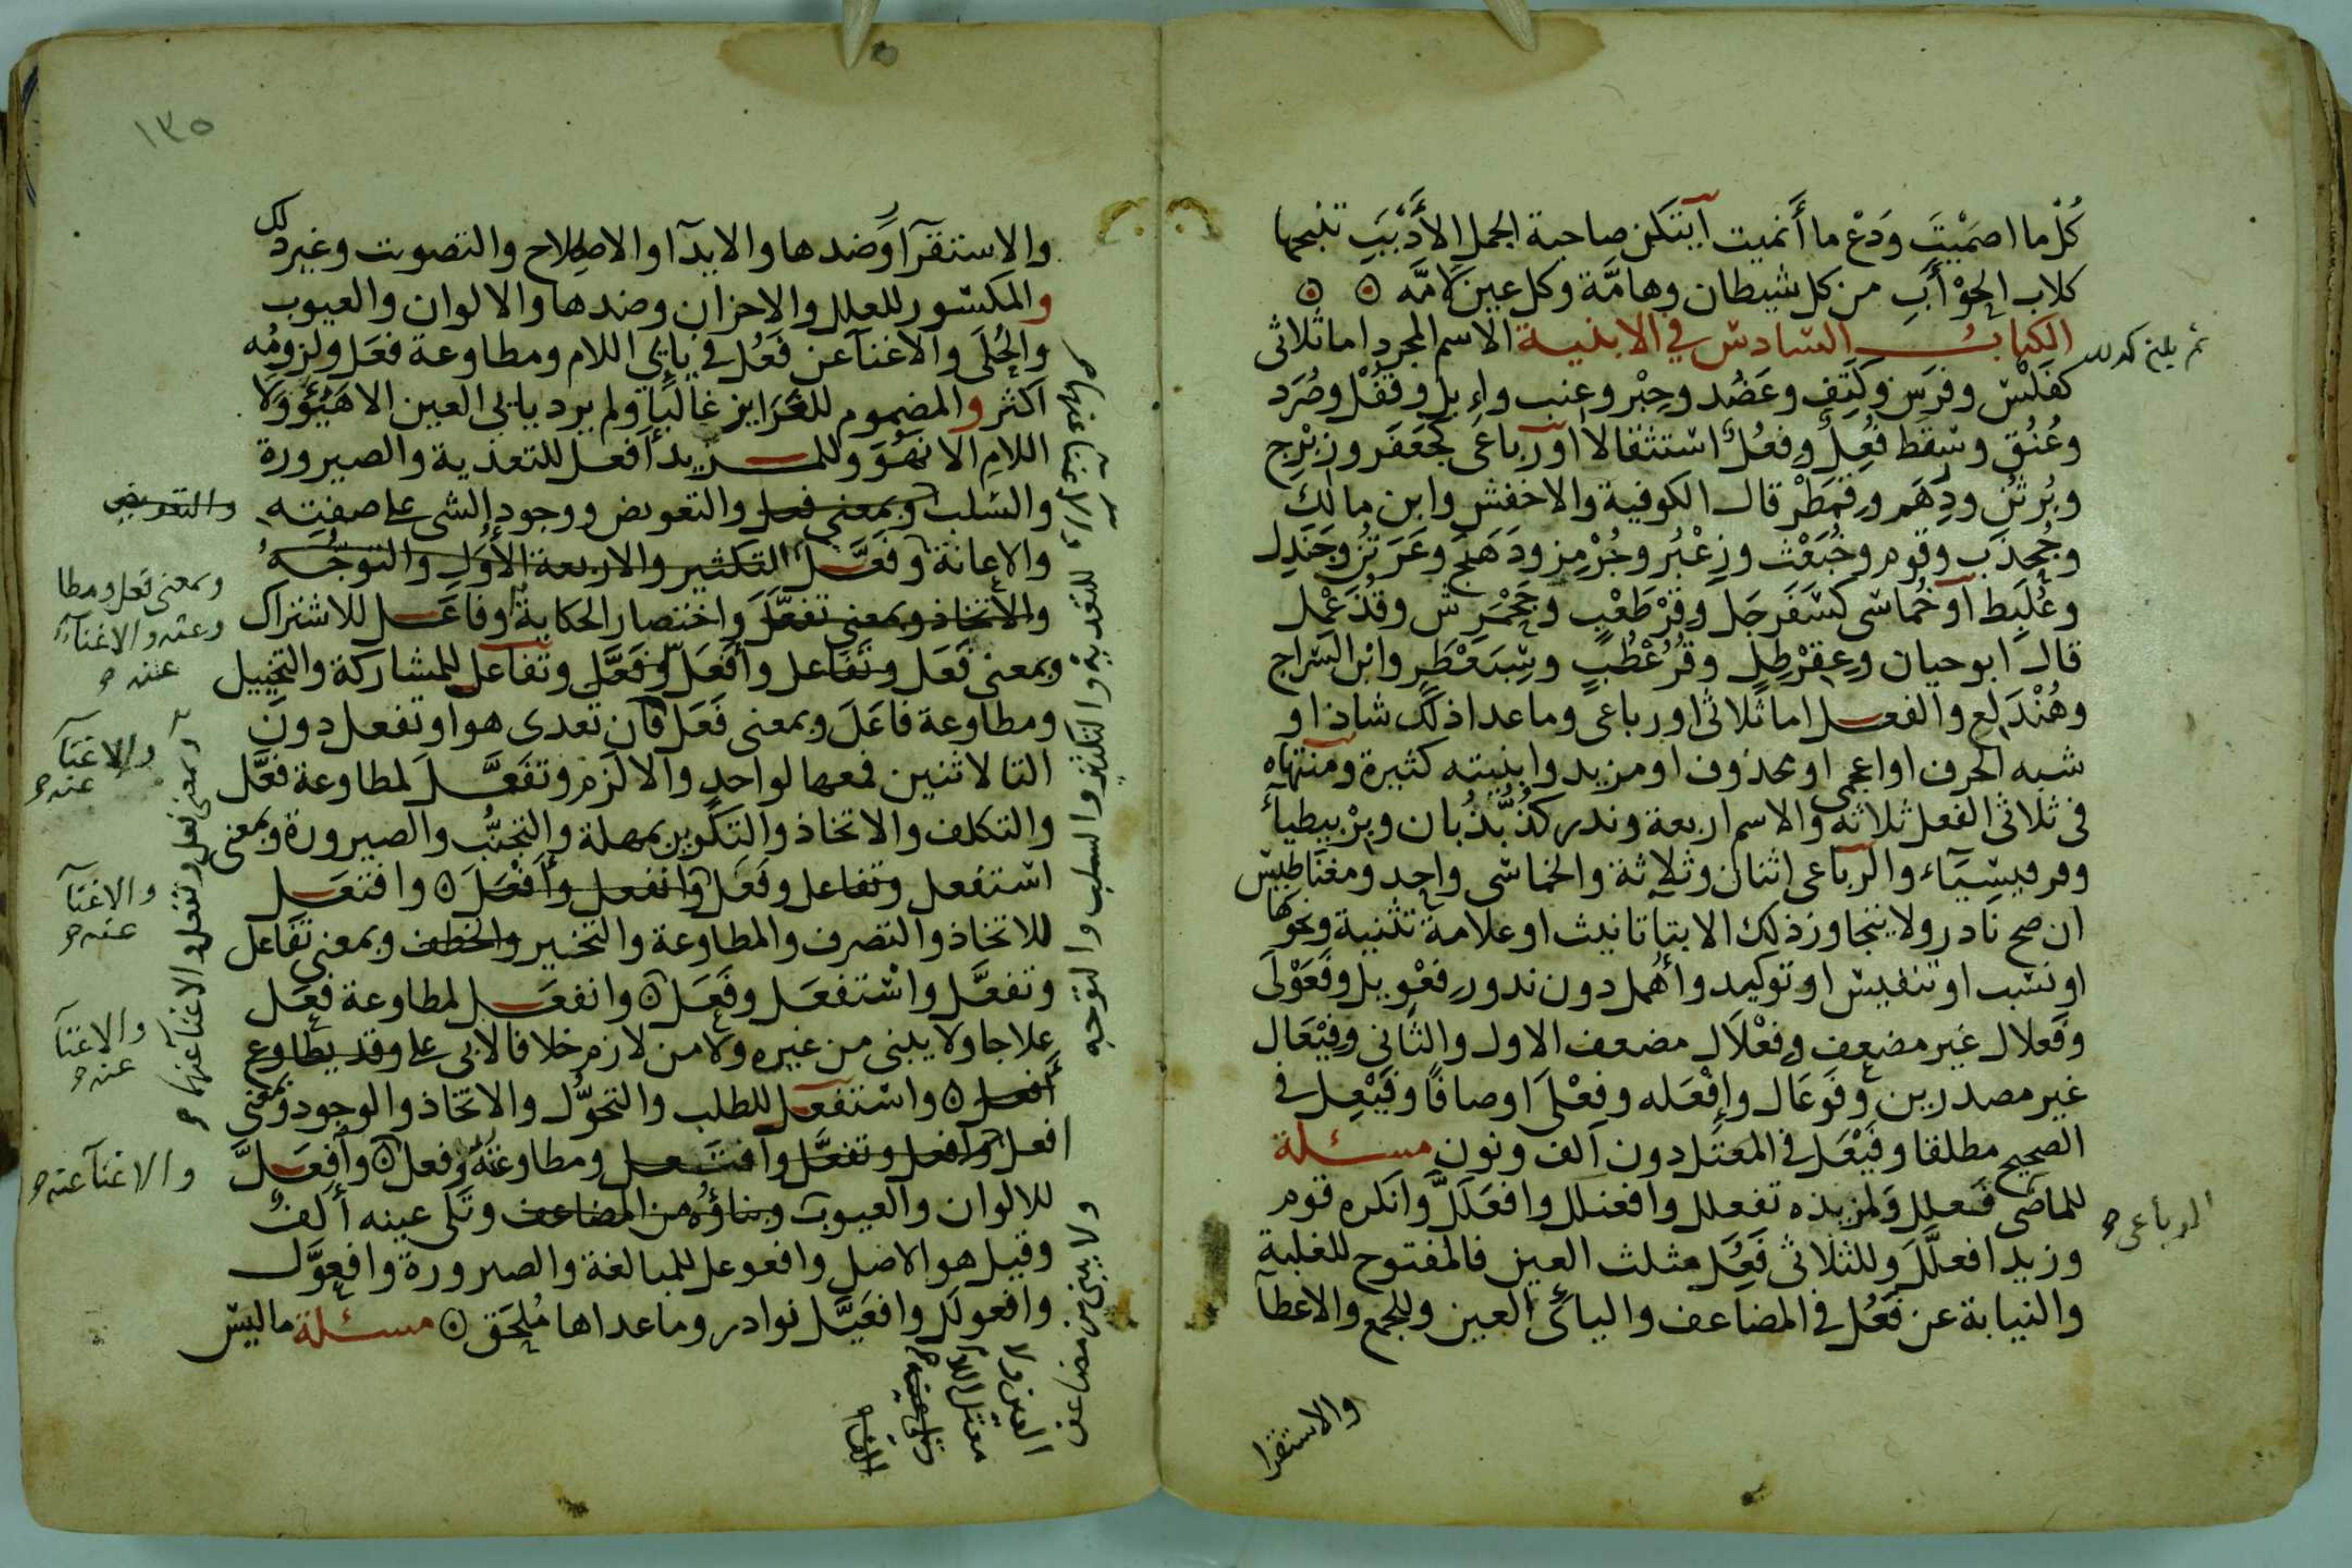 كُلْ ما اصمَيْتَ وَدَعْ ما أَنميت آيتكن صاحبة الجمل الأَدْبَبِ تنبحها
كلاب الحَوْأَبِ من كل شيطان وهامَّة وكل عين لامَّه
الكتاب السادس في الابنية الاسم المجرد اما ثلاثى
كفَلْس وفرَس وكَتِف وعَضُد وحِبْر وعِنب واِبِل وقُفْل وصُرَد
وعُنُق وسقط فُعِل وفِعُل استثقالا او رباعى كجَعفَر وزِبْرِج
وبُرثُن ودِرهَم وقِمَطْر قال الكوفية والاخفش وابن مالك
وجُخدَب وقوم وخُبَعْث وزِعْبُر وخُرْمِز ودَهَنج وعَرَتُن وجَنَدِل
وعُلَبِط او خُماسى كسَفَرجَل وقِرْطَعْب وجَحْمَرِش وقُذَعْمِل
قال ابو حيان وعِقِرْطِل وقُرُعْطُب وسِبَعْطَر وابن السراج
وهُنْدَلِع والفعل اما ثلاثى او رباعى وما عدا ذلك شاذ او
شبه الحرف او اعجمى او محذوف او مزيد وابنيته كثيرة ومنتهاه
فى ثلاثى الفعل ثلاثة والاسم اربعة وندر كذُبذُبان وبِرْبيطياء
وقرقيسياء والرباعى اثنان وثلاثة والخماسى واحد ومغناطيس
ان صح نادر ولا يتجاوز ذلك الا بتا تانيث او علامة تثنية ونحوها
او نسب او تنفيس او توكيد وأُهمل دون ندور فِعْويل وفَعَوْلَى
وفَعلال غير مضعف وفِعْلال مضعف الاول والثانى وفِيْعَال
غير مصدرين وفَوعَال وإفْعَله وفِعْلَى اوصافا وفَيْعِل فى
الصحيح مطلقا وفَيْعَل فى المعتل دون الف ونون مسئلة
للماضى فعلل ولمزيده تفعلل وافعنلل وافعلَلَّ وانكره قوم
وزيد افعلَّل وللثلاثى فعل مثلث العين فالمفتوح للغلبة
والنيابة عن فَعُل فى المضاعف واليائى العين وللجمع والاعطا
والاستقرا
الرباعى
١٣٥
والاستقرا وضدها والايذا والاصلاح والتصويت وغير ذلك
والمكسور للعلل والاحزان وضدها والالوان والعيوب
والحُلَى والاغنا عن فَعُل فى يائى اللام ومطاوعة فَعَل ولزومُه
اكثر والمضموم للغرايز غالبًا ولم يرد يائى العين الا هَيُؤ ولا
اللامِ الا نَهُوَ وللمزيد أفعل للتعدية والصيرورة
والسلب وبمعنى فعل والتعويض ووجود الشى على صفته
والاعانة وفَعَّل التكثير والاربعة الأُوَل والتوجُّه
والاتخاذ وبمعنى تفعَّل واختصار الحكاية وفاعَل للاشتراك
وبمعنى فَعَل وتفاعل وأفعَل وفَعَّل وتفاعل للمشاركة والتخييل
ومطاوعة فاعَلَ وبمعنى فَعَل فان تعدى هو او تفعل دون
التا لاثنين فمعها لواحد والا لزم وتفَعَّل لمطاوعة فعَّل
والتكلف والاتخاذ والتكوين بمهلة والتجنُّب والصيرورة وبمعنى
استفعل وتفاعل وفَعَل وانفعل وأفْعَل وافتعَل
للاتخاذ والتصرف والمطاوعة والتخيير والخطف وبمعنى تَفاعل
وتفعَّل واستفعَل وفَعَل وانفعَل لمطاوعة فعَل
علاجا ولا يبنى من غيره ولا من لازم خلافا لابى على وقد يطاوع
أفعل واستفعل للطلب والتحوُّل والاتخاذ والوجود وبمعنى
افعل وافعل وتفعَّل وافتعل ومطاوعته وفعل وافعَلَّ
للالوان والعيوب وبناؤه من المضاعف وتَلَى عينه ألفٌ
وقيل هو الاصل وافعوعل للمبالغة والصيرورة وافعوَّل
وافعولَل وافعَيَّل نوادر وما عداها مُلحَق مسئلة ما ليس
والتعويض
وبمعنى فعل ومطا
وعته والاغنآ
عنه
والاغنآ
عنه
والاغنآ
عنه
والاغنآ
عنه
والاغنآ عنه
وبمعنى فعل وتفعل والاغنآ عنهما
للتعدية والتكثير والسلب والتوجه
ولا يبنى من مضاعف
العين ولا
معتل اللام